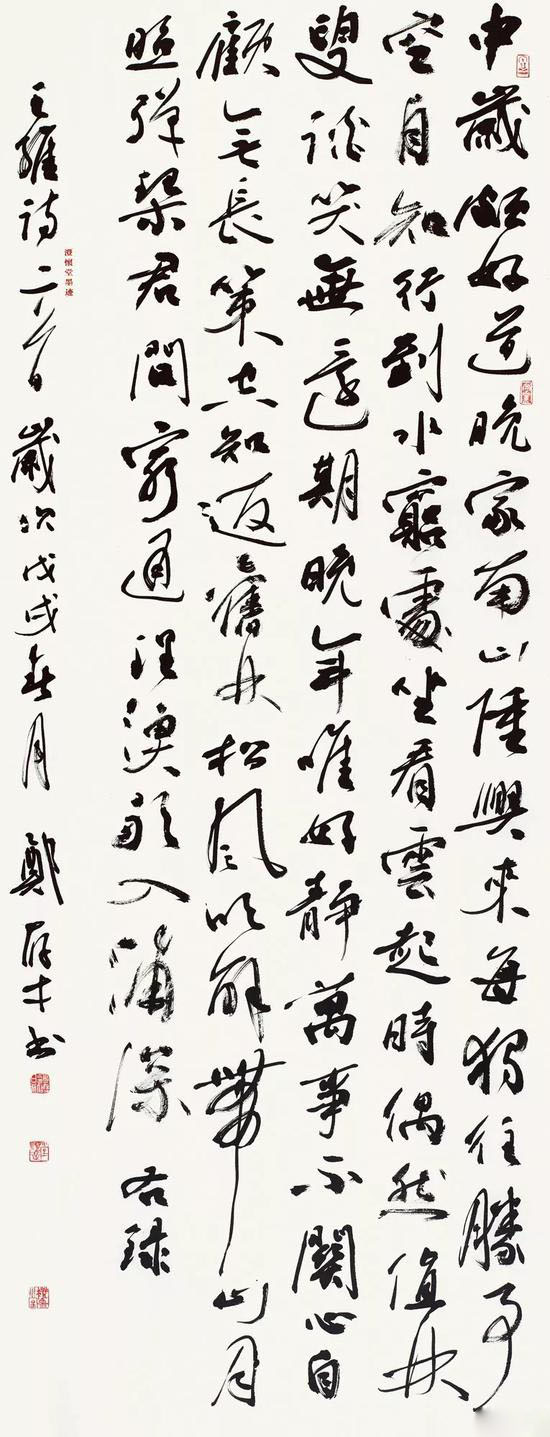 中歲頗好道晚家南山陲興來每獨往勝事
空自知行到水窮處坐看雲起時偶然值林
叟談笑無還期晚年唯好靜萬事不關心自
顧無長策空知返舊林松風吹解帶山月
照彈琴君問窮通理漁歌入浦深 右錄
王維詩二首 歲次戊戌春月 鄭才書
澄懷堂墨迹